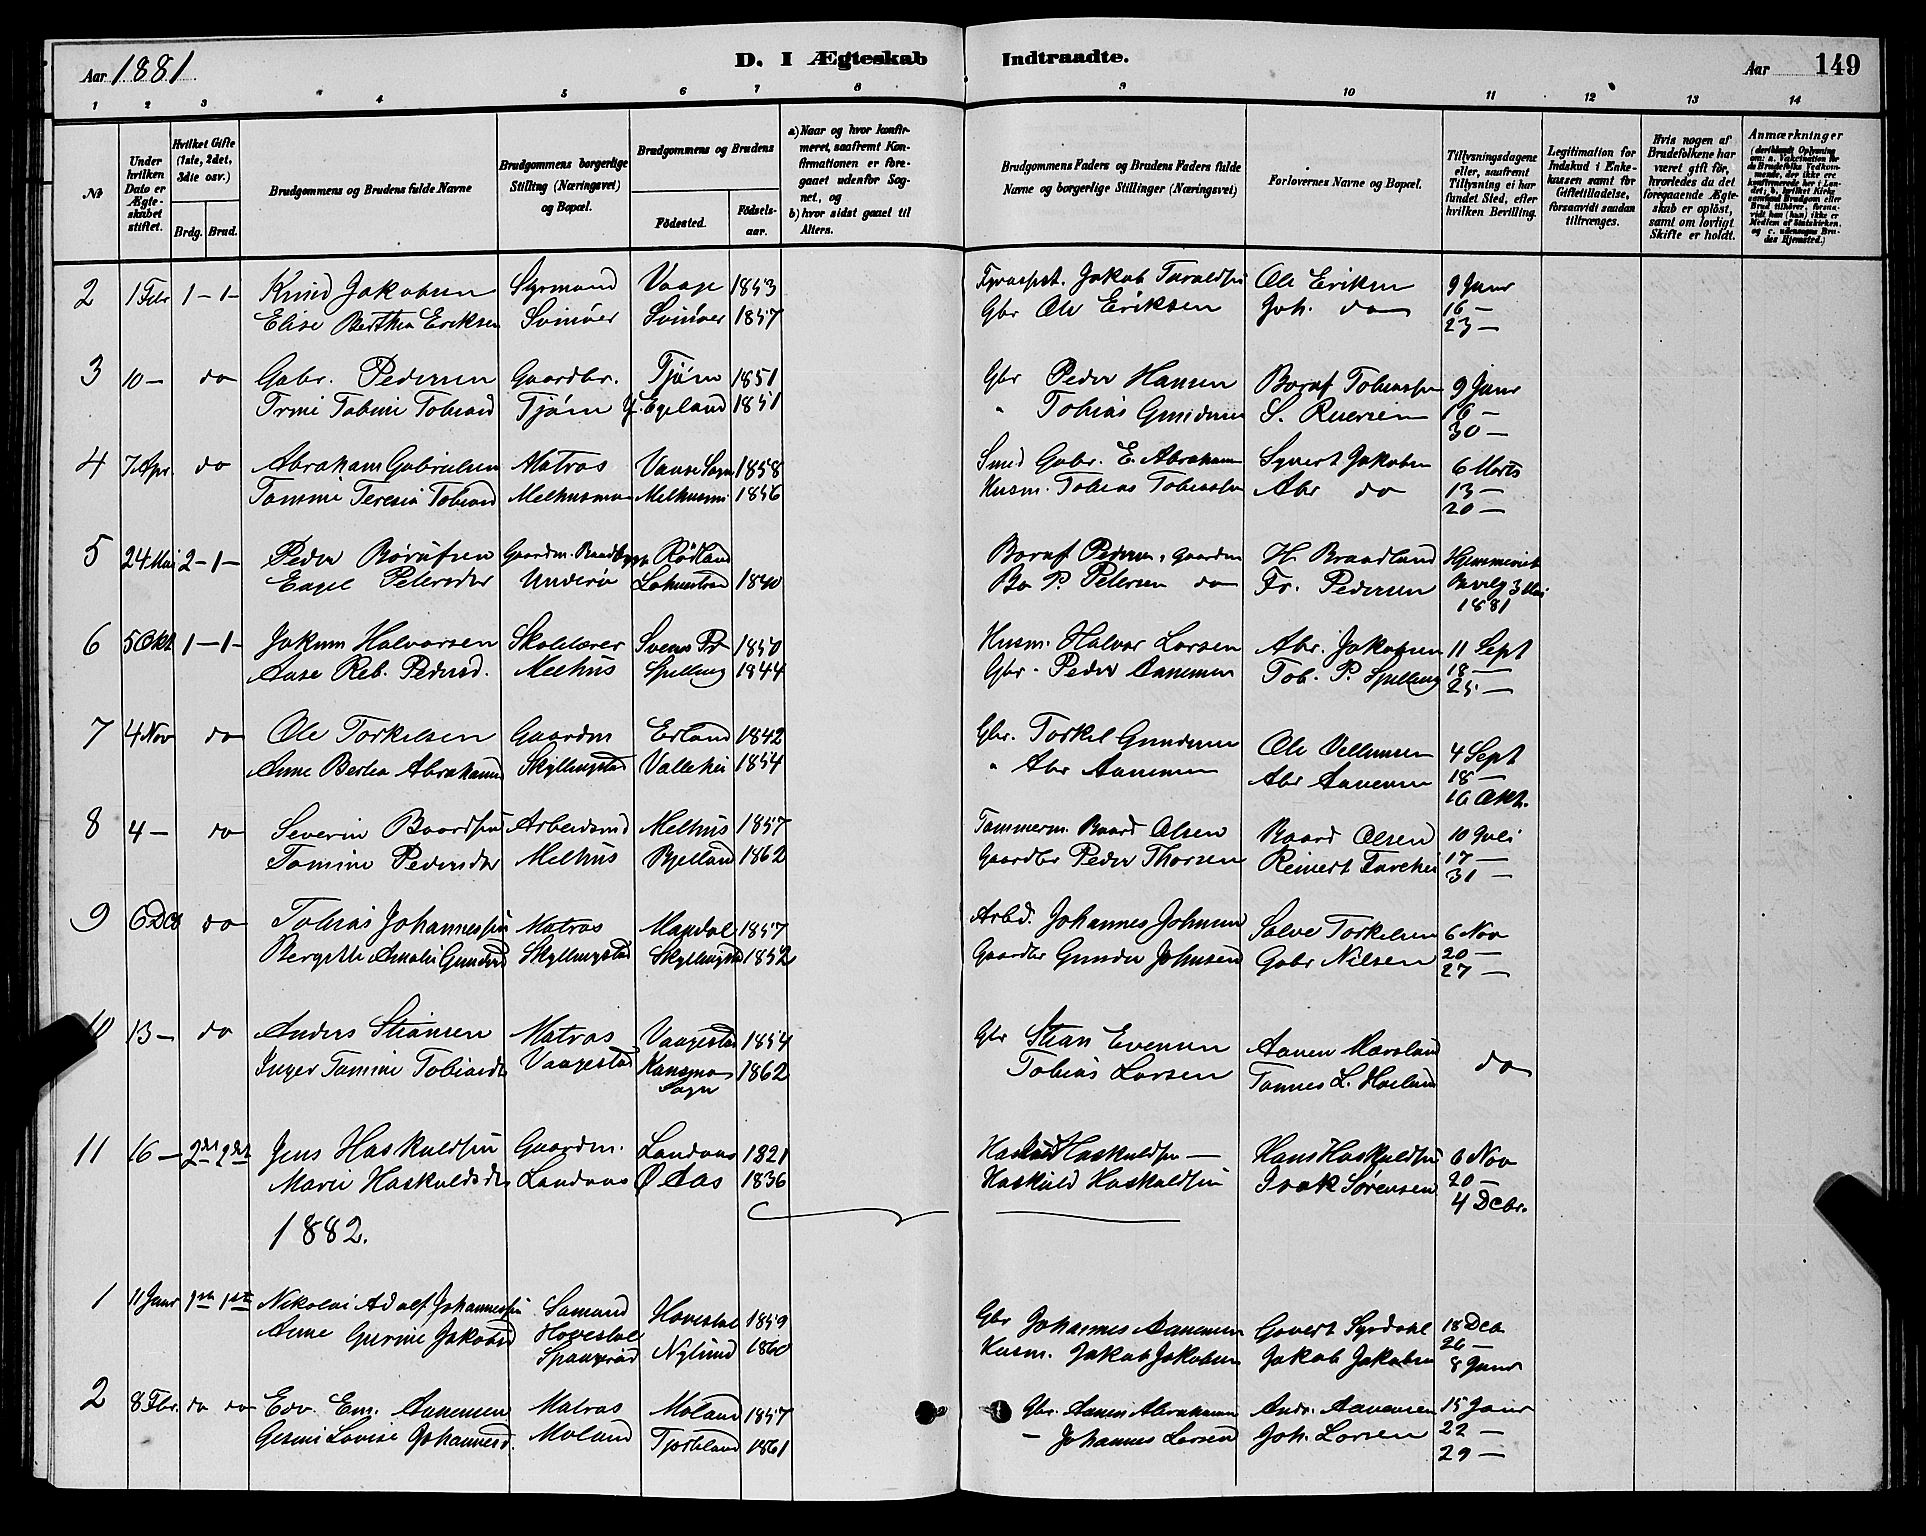 Aar 1881. D. I Ægteskab Indtraadte. Aar 149
1 2 3 4 5 6 7 8 9 10 11 12 13 14
No
Under hvilken Dato er Ægteskabet stiftet.
Hvilket Gifte (1ste, 2det, 3die osv.)
Brdg. Brud.
Brudgommens og Brudens fulde Navne
Brudgommens borgerlige Stilling (Næringsvei) og Bopæl.
Brudgommens og Brudens
Fødested. Fødselsaar.
a) Naar og hvor konfirmeret, saafremt Konfirmationen er foregaaet udenfor Sognet, og
b) hvor sidst gaaet til Alters.
Brudgommens Faders og Brudens Faders fulde Navne og borgerlige Stillinger (Næringsvei)
Forlovernes Navne og Bopæl.
Tillysningsdagene eller, saafremt Tillysning ei har fundet Sted, efter hvilken Bevilling.
Legitimation for Indskud i Enkekassen samt for Giftetilladelse, forsaavidt saadan tiltrænges.
Hvis nogen af Brudefolkene har været gift før, hvorledes da det foregaaende Ægteskab er opløst, samt om lovligt Skifte er holdt.
Anmærkninger
2 1 Febr 1-1- Knud Jakobsen Styrmand Vaage 1853 Jakob Taraldsen Ole Eriksen 9 Janr
Elise Berthea Eriksen Svinøer Svinøer 1857 Gbr Ole Eriksen Joh. do 16 -
23 -
3 10 - do Gabr. Pedersen Gaardbr. Tjøm 1851 Gbr Peder Hansen Tobiassen 9 Janr
Trine Tobine Tobiasd Tjøm Egeland 1851 " Tobias Gundersen S. 16 -
30 -
4 7 Apr. do Abraham Gabrielsen Matros Vanse Sogn 1858 Smed Gabr. E. Abrahamsen Syvert Jakobsen 6 Marts
Tomine Teresia Tobiasd Melhusmo Melhusmo 1856 Husm. Tobias Tobiassen Abr do 13 -
20 -
5 24 Mai 2-1- Peder Børufsen Gaardm. Rødland Boruf Pedersen, Gaardm H. Braadland Hjemmeviet
Engel Petersdtr Underø 1840 Bo P. Petersen do Fr. Pedersen Bevilg 3 Mai
1881
6 5 Okt 1-1- Jokum Halvorsen Skolelærer 1850 Husm. Halvor Larsen Abr. Jakobsen 11 Sept
Aase Reb. Pedersd. Melhus Spilling 1844 Gbr - Peder Aanensen Tob. P. Spilling 18 -
25 -
7 4 Nov do Ole Torkelsen Gaardm Erland 1842 Gbr. Torkel Gundersen Ole Villumsen 4 Sept
Anne Bertea Abrahamsd Skyllingstad 1854 " Abr Aanensen Abr Aanensen 18 -
16 Okt.
8 4 - do Severin Baardsen Arbeidsmd Melhus 1857 Tømmerm. Baard Olsen Baard Olsen 10 Juli
Tomine Pedersdtr Melhus Bjelland 1862 Gaardbr Peder Thorsen Reinert 17 -
31 -
9 6 Dcb do Tobias Johannessen Matros Mandal 1857 Arbd. Johannes Johnsen Salve Torkelsen 6 Nov
Bergitte Amalie Gundersd Skyllingstad Skyllingstad 1852 Gaardbr Gunder Johnsen Gabr Nilsen 20 -
27 -
10 13 - do Anders Stiansen Matros Vaagestad 1854 Gbr Stian Evensen Aanen
Inger Tomine Tobiasdtr Vaagestad Sogn 1862 Tobias Larsen Tønnes L. do
11 16 - 2det 2det Jens Haskuldsen Gaardm. Landaas 1821 Haskuldsen - Hans Haskuldsen 6 Nov
Marie Haskuldsdtr Landaas Ø Aas 1836 Haskuld Haskuldsen Isak Sørensen 20 -
4 Dcbr.
1882.
1 11 Janr 1ste 1ste Nikolai Adolf Johannessen Sømand Hovestøl 1859 Gbr Johannes Aanensen Govert Syrdahl 18 Dcb
Anne Gurine Jakobsd Hovestøl Spangerød Nylund 1860 Husm. Jakob Jakobsen Jakob Jakobsen 26 -
8 Janr
2 8 Fbr. do do Edv. Em. Aanensen Matros Moland 1857 Gbr. Aanen Abrahamsen Andr. Aanensen 15 Janr
Gesine Lovise Johannesd. Moland 1861 - Johannes Larsen Joh. Larsen 22 -
29 -